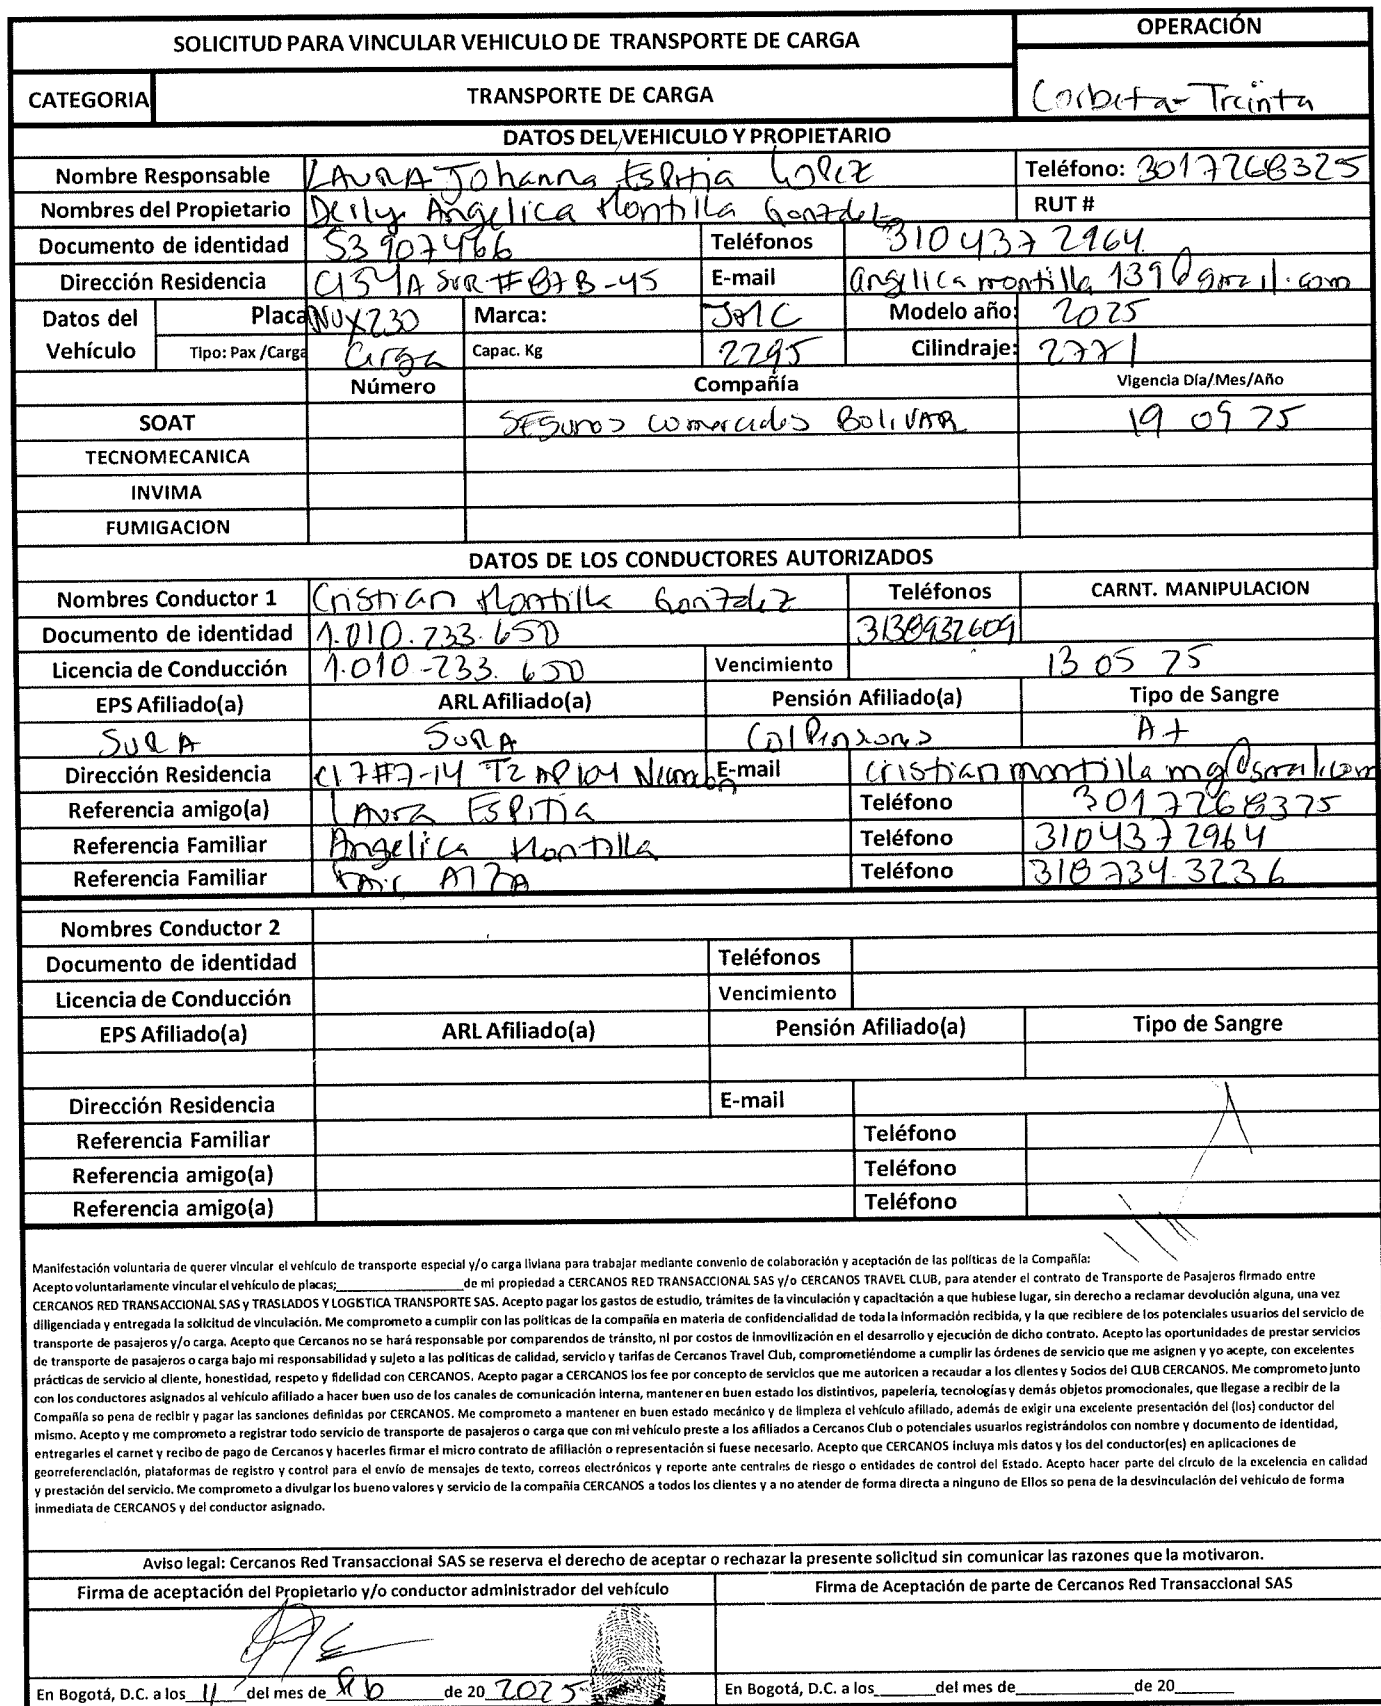 SOLICITUD PARA VINCULAR VEHICULO DE TRANSPORTE DE CARGA
OPERACIÓN
CATEGORIA TRANSPORTE DE CARGA
Corbeta-Treinta
DATOS DEL VEHICULO Y PROPIETARIO
Nombre Responsable LAURA Johanna Espitia Lopez Teléfono: 3017726B325
Nombres del Propietario Deily Angelica Montilla Gonzalez RUT #
Documento de identidad 53907466 Teléfonos 3104372964
Dirección Residencia Cl54A SUR # 87B-45 E-mail angelica montilla 139@gmail.com
Datos del Vehículo Placa NUX230 Marca: JMC Modelo año: 2025
Tipo: Pax /Carga Carga Capac. Kg 2295 Cilindraje: 2771
Número Compañía Vigencia Día/Mes/Año
SOAT Seguros comerciales BOLIVAR 19 09 25
TECNOMECANICA
INVIMA
FUMIGACION
DATOS DE LOS CONDUCTORES AUTORIZADOS
Nombres Conductor 1 Cristian Montilla Gonzalez Teléfonos CARNT. MANIPULACION
Documento de identidad 1.010.233.650 3138932609
Licencia de Conducción 1.010-233.650 Vencimiento 13 05 25
EPS Afiliado(a) ARL Afiliado(a) Pensión Afiliado(a) Tipo de Sangre
SURA SURA Colpensiones A+
Dirección Residencia Cl 7#7-14 T2 AP 104 E-mail cristianmontilla mg@gmail.com
Referencia amigo(a) Laura Espitia Teléfono 3017726B325
Referencia Familiar Angelica Montilla Teléfono 3104372964
Referencia Familiar Teléfono 318734.3236
Nombres Conductor 2
Documento de identidad Teléfonos
Licencia de Conducción Vencimiento
EPS Afiliado(a) ARL Afiliado(a) Pensión Afiliado(a) Tipo de Sangre
Dirección Residencia E-mail
Referencia Familiar Teléfono
Referencia amigo(a) Teléfono
Referencia amigo(a) Teléfono
Manifestación voluntaria de querer vincular el vehículo de transporte especial y/o carga liviana para trabajar mediante convenio de colaboración y aceptación de las políticas de la Compañía:
Acepto voluntariamente vincular el vehículo de placas;____________________de mi propiedad a CERCANOS RED TRANSACCIONAL SAS y/o CERCANOS TRAVEL CLUB, para atender el contrato de Transporte de Pasajeros firmado entre
CERCANOS RED TRANSACCIONAL SAS y TRASLADOS Y LOGISTICA TRANSPORTE SAS. Acepto pagar los gastos de estudio, trámites de la vinculación y capacitación a que hubiese lugar, sin derecho a reclamar devolución alguna, una vez
diligenciada y entregada la solicitud de vinculación. Me comprometo a cumplir con las políticas de la compañía en materia de confidencialidad de toda la información recibida, y la que recibiere de los potenciales usuarios del servicio de
transporte de pasajeros y/o carga. Acepto que Cercanos no se hará responsable por comparendos de tránsito, ni por costos de inmovilización en el desarrollo y ejecución de dicho contrato. Acepto las oportunidades de prestar servicios
de transporte de pasajeros o carga bajo mi responsabilidad y sujeto a las políticas de calidad, servicio y tarifas de Cercanos Travel Club, comprometiéndome a cumplir las órdenes de servicio que me asignen y yo acepte, con excelentes
prácticas de servicio al cliente, honestidad, respeto y fidelidad con CERCANOS. Acepto pagar a CERCANOS los fee por concepto de servicios que me autoricen a recaudar a los clientes y Socios del CLUB CERCANOS. Me comprometo junto
con los conductores asignados al vehículo afiliado a hacer buen uso de los canales de comunicación interna, mantener en buen estado los distintivos, papelería, tecnologías y demás objetos promocionales, que llegase a recibir de la
Compañía so pena de recibir y pagar las sanciones definidas por CERCANOS. Me comprometo a mantener en buen estado mecánico y de limpieza el vehículo afiliado, además de exigir una excelente presentación del (los) conductor del
mismo. Acepto y me comprometo a registrar todo servicio de transporte de pasajeros o carga que con mi vehículo preste a los afiliados a Cercanos Club o potenciales usuarios registrándolos con nombre y documento de identidad,
entregarles el carnet y recibo de pago de Cercanos y hacerles firmar el micro contrato de afiliación o representación si fuese necesario. Acepto que CERCANOS incluya mis datos y los del conductor(es) en aplicaciones de
georreferenciación, plataformas de registro y control para el envío de mensajes de texto, correos electrónicos y reporte ante centrales de riesgo o entidades de control del Estado. Acepto hacer parte del círculo de la excelencia en calidad
y prestación del servicio. Me comprometo a divulgar los bueno valores y servicio de la compañía CERCANOS a todos los clientes y a no atender de forma directa a ninguno de Ellos so pena de la desvinculación del vehículo de forma
inmediata de CERCANOS y del conductor asignado.
Aviso legal: Cercanos Red Transaccional SAS se reserva el derecho de aceptar o rechazar la presente solicitud sin comunicar las razones que la motivaron.
Firma de aceptación del Propietario y/o conductor administrador del vehículo Firma de Aceptación de parte de Cercanos Red Transaccional SAS
En Bogotá, D.C. a los 11 del mes de Feb de 20 2025 En Bogotá, D.C. a los_______del mes de_____________de 20_______